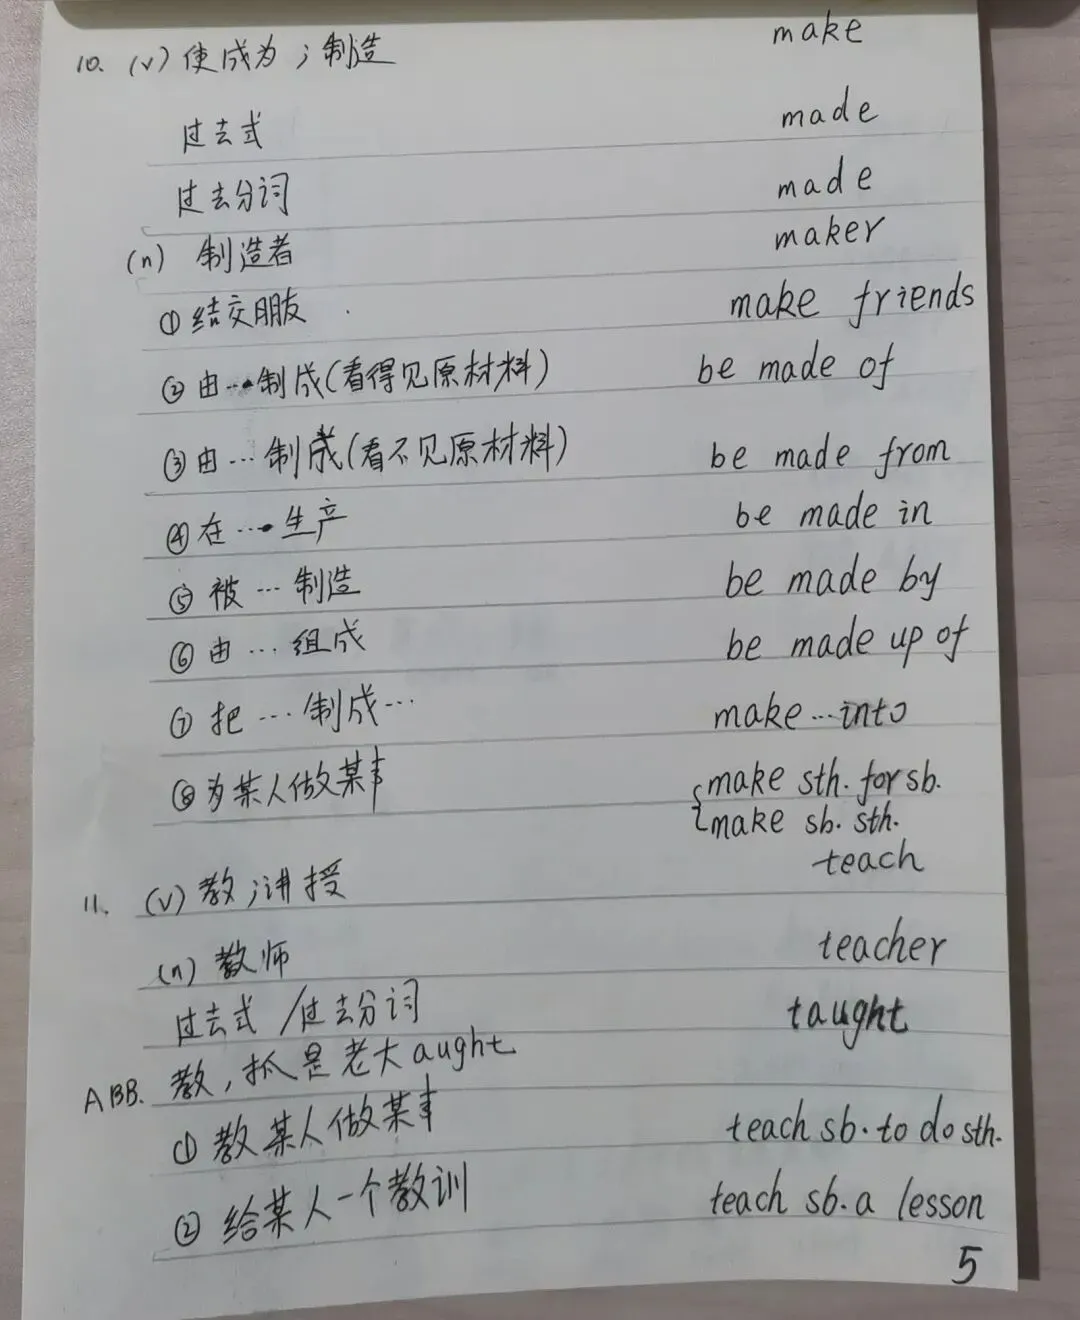 10. (v) 使成为；制造 make
过去式 made
过去分词 made
(n) 制造者 maker
①结交朋友 make friends
②由…制成(看得见原材料) be made of
③由…制成(看不见原材料) be made from
④在…生产 be made in
⑤被…制造 be made by
⑥由…组成 be made up of
⑦把…制成… make…into
⑧为某人做某事 make sth. for sb.
make sb. sth.
11. (v) 教；讲授 teach
(n) 教师 teacher
过去式/过去分词 taught
ABB. 教,抓是老大aught
①教某人做某事 teach sb. to do sth.
②给某人一个教训 teach sb. a lesson
5